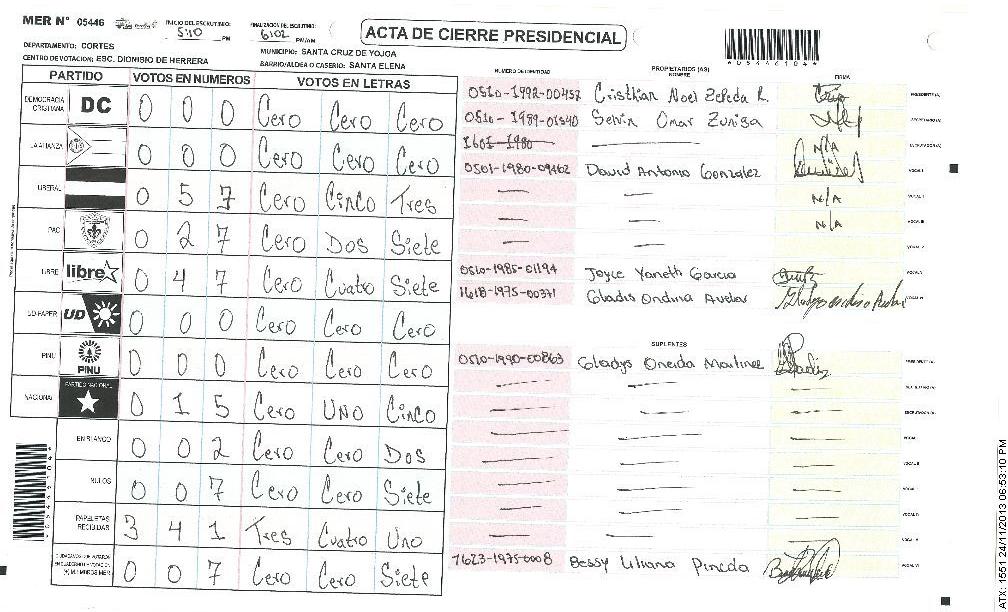 MER N° 05446
INICIO DEL ESCRUTINIO: 5:10 PM
FINALIZACION DEL ESCRUTINIO: 6:02 PM/AM
ACTA DE CIERRE PRESIDENCIAL
DEPARTAMENTO: CORTES
MUNICIPIO: SANTA CRUZ DE YOJOA
CENTRO DE VOTACION: ESC. DIONISIO DE HERRERA
BARRIO/ALDEA O CASERIO: SANTA ELENA
PARTIDO VOTOS EN NUMEROS VOTOS EN LETRAS
DEMOCRACIA CRISTIANA DC 0 0 0 Cero Cero Cero
LA ALIANZA 0 0 0 Cero Cero Cero
LIBERAL 0 5 7 Cero Cinco Tres
PAC 0 2 7 Cero Dos Siete
LIBRE libre 0 4 7 Cero Cuatro Siete
UD FAPER UD 0 0 0 Cero Cero Cero
PINU PINU 0 0 0 Cero Cero Cero
NACIONAL PARTIDO NACIONAL 0 1 5 Cero Uno Cinco
EN BLANCO 0 0 2 Cero Cero Dos
NULOS 0 0 7 Cero Cero Siete
PAPELETAS RECIBIDAS 3 4 1 Tres Cuatro Uno
0 0 7 Cero Cero Siete
NUMERO DE IDENTIDAD PROPIETARIOS (AS) NOMBRE FIRMA
0510-1992-00457 Cristhian Noel Zepeda R. PRESIDENTE(A)
0510-1989-01540 Selvin Omar Zuniga SECRETARIO(A)
1601-1980 N/A ESCRUTADOR(A)
0501-1980-09462 David Antonio Gonzalez VOCAL I
N/A
N/A
0510-1985-01194 Joyce Yaneth Garcia
1618-1975-00371 Gladis Ondina Avelar
SUPLENTES
0510-1990-00863 Gladys Oneida Martinez PRESIDENTE(A)
1623-1975-0008 Bessy Liliana Pineda
ATX: 1551 24/11/2013 06:53:10 PM